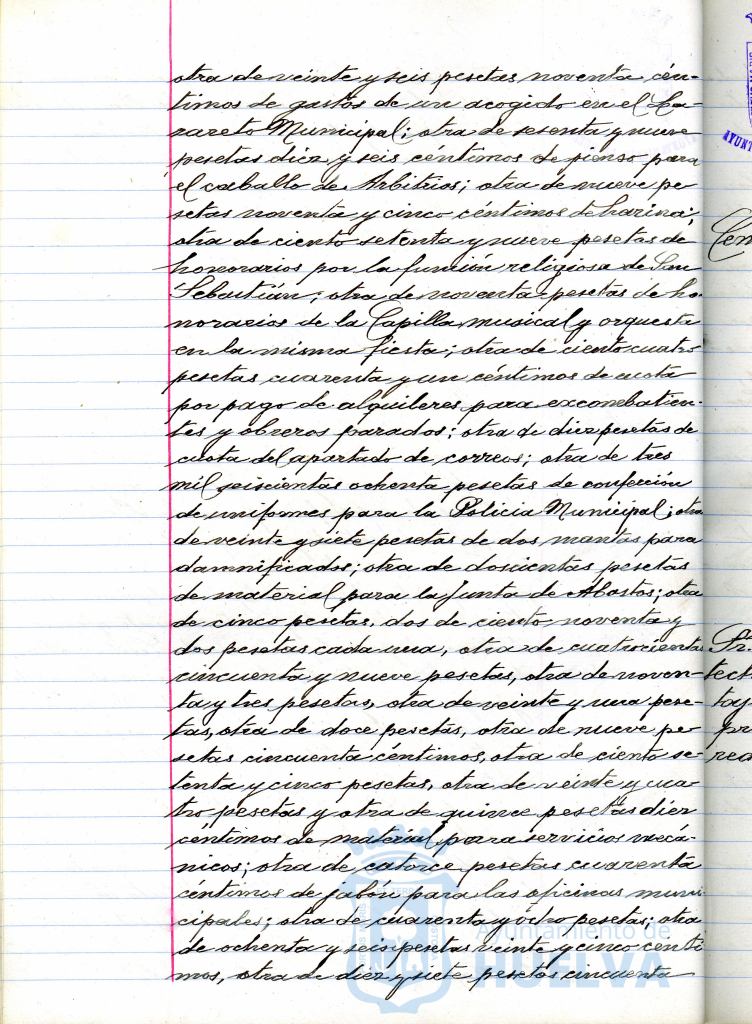 otra de veinte y seis pesetas noventa cén-
timos de gastos de un acogido en el La-
zareto Municipal; otra de sesenta y nueve
pesetas diez y seis céntimos de pienso para
el caballo de Arbitrios; otra de nueve pe
setas noventa y cinco céntimos de harina;
otra de ciento setenta y nueve pesetas de
honorarios por la función religiosa de San
Sebastián; otra de noventa pesetas de ho-
norarios de la Capilla musical y orquesta
en la misma fiesta; otra de ciento cuatro
pesetas cuarenta y un céntimos de cuota
por pago de alquileres para excombatien-
tes y obreros parados; otra de diez pesetas de
cuota del apartado de correos; otra de tres
mil seiscientas ochenta pesetas de confección
de uniformes para la Policia Municipal; otra
de veinte y siete pesetas de dos mantas para
damnificados; otra de doscientas pesetas
de material para la Junta de Abastos; otra
de cinco pesetas, dos de ciento noventa y
dos pesetas cada una, otra de cuatrocientas
cincuenta y nueve pesetas, otra de noven-
ta y tres pesetas, otra de veinte y una pese-
tas, otra de doce pesetas, otra de nueve pe
setas cincuenta céntimos, otra de ciento se-
tenta y cinco pesetas, otra de veinte y cua-
tro pesetas y otra de quince pesetas diez
céntimos de material para servicios mecá-
nicos; otra de catorce pesetas cuarenta
céntimos de jabón para las oficinas muni
cipales; otra de cuarenta y ocho pesetas; otra
de ochenta y seis pesetas veinte y cinco centi
mos, otra de diez y siete pesetas cincuenta
Ayuntamiento de
HUELVA